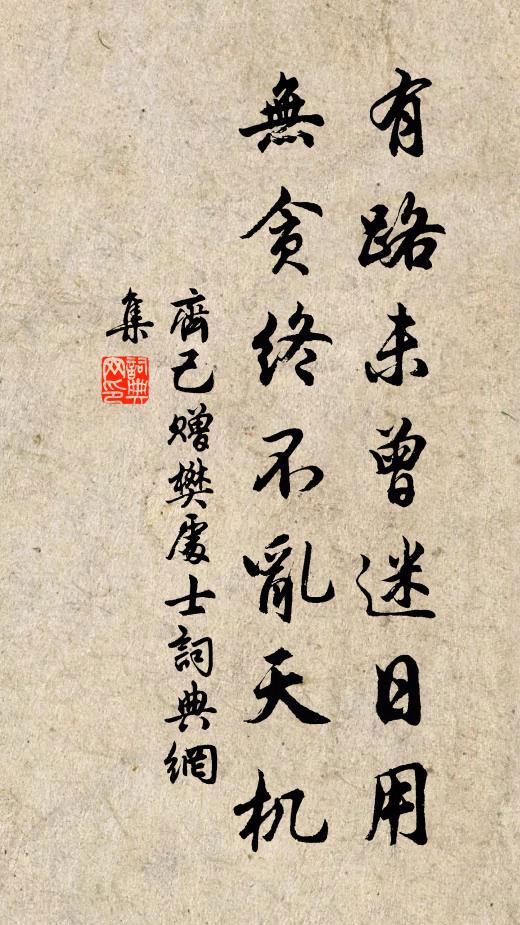 有路未曾迷日用
無貪終不亂天机
齊己贈樊處士詞典網
集
詞典
网印